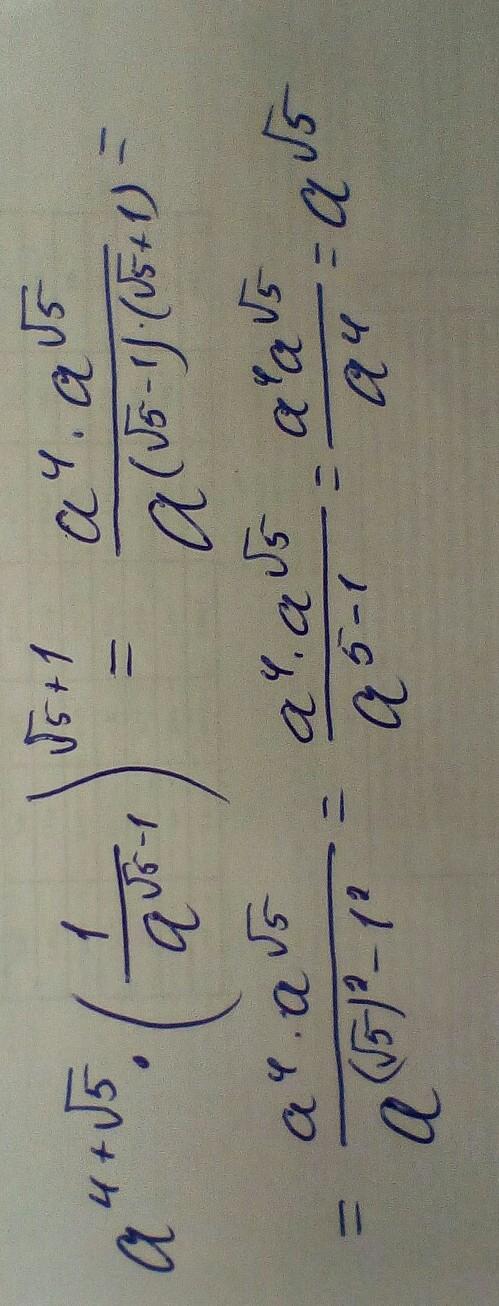 a^{4+√5} · (1/a^{√5-1})^{√5+1} = (a^4 · a^{√5})/(a^{(√5-1)·(√5+1)}) =
= (a^4 · a^{√5})/(a^{(√5)^2-1^2}) = (a^4 · a^{√5})/(a^{5-1}) = (a^4 a^{√5})/(a^4) = a^{√5}